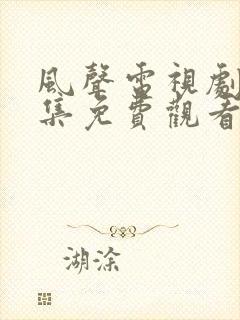 風聲電視劇
集免費觀看
湖涂